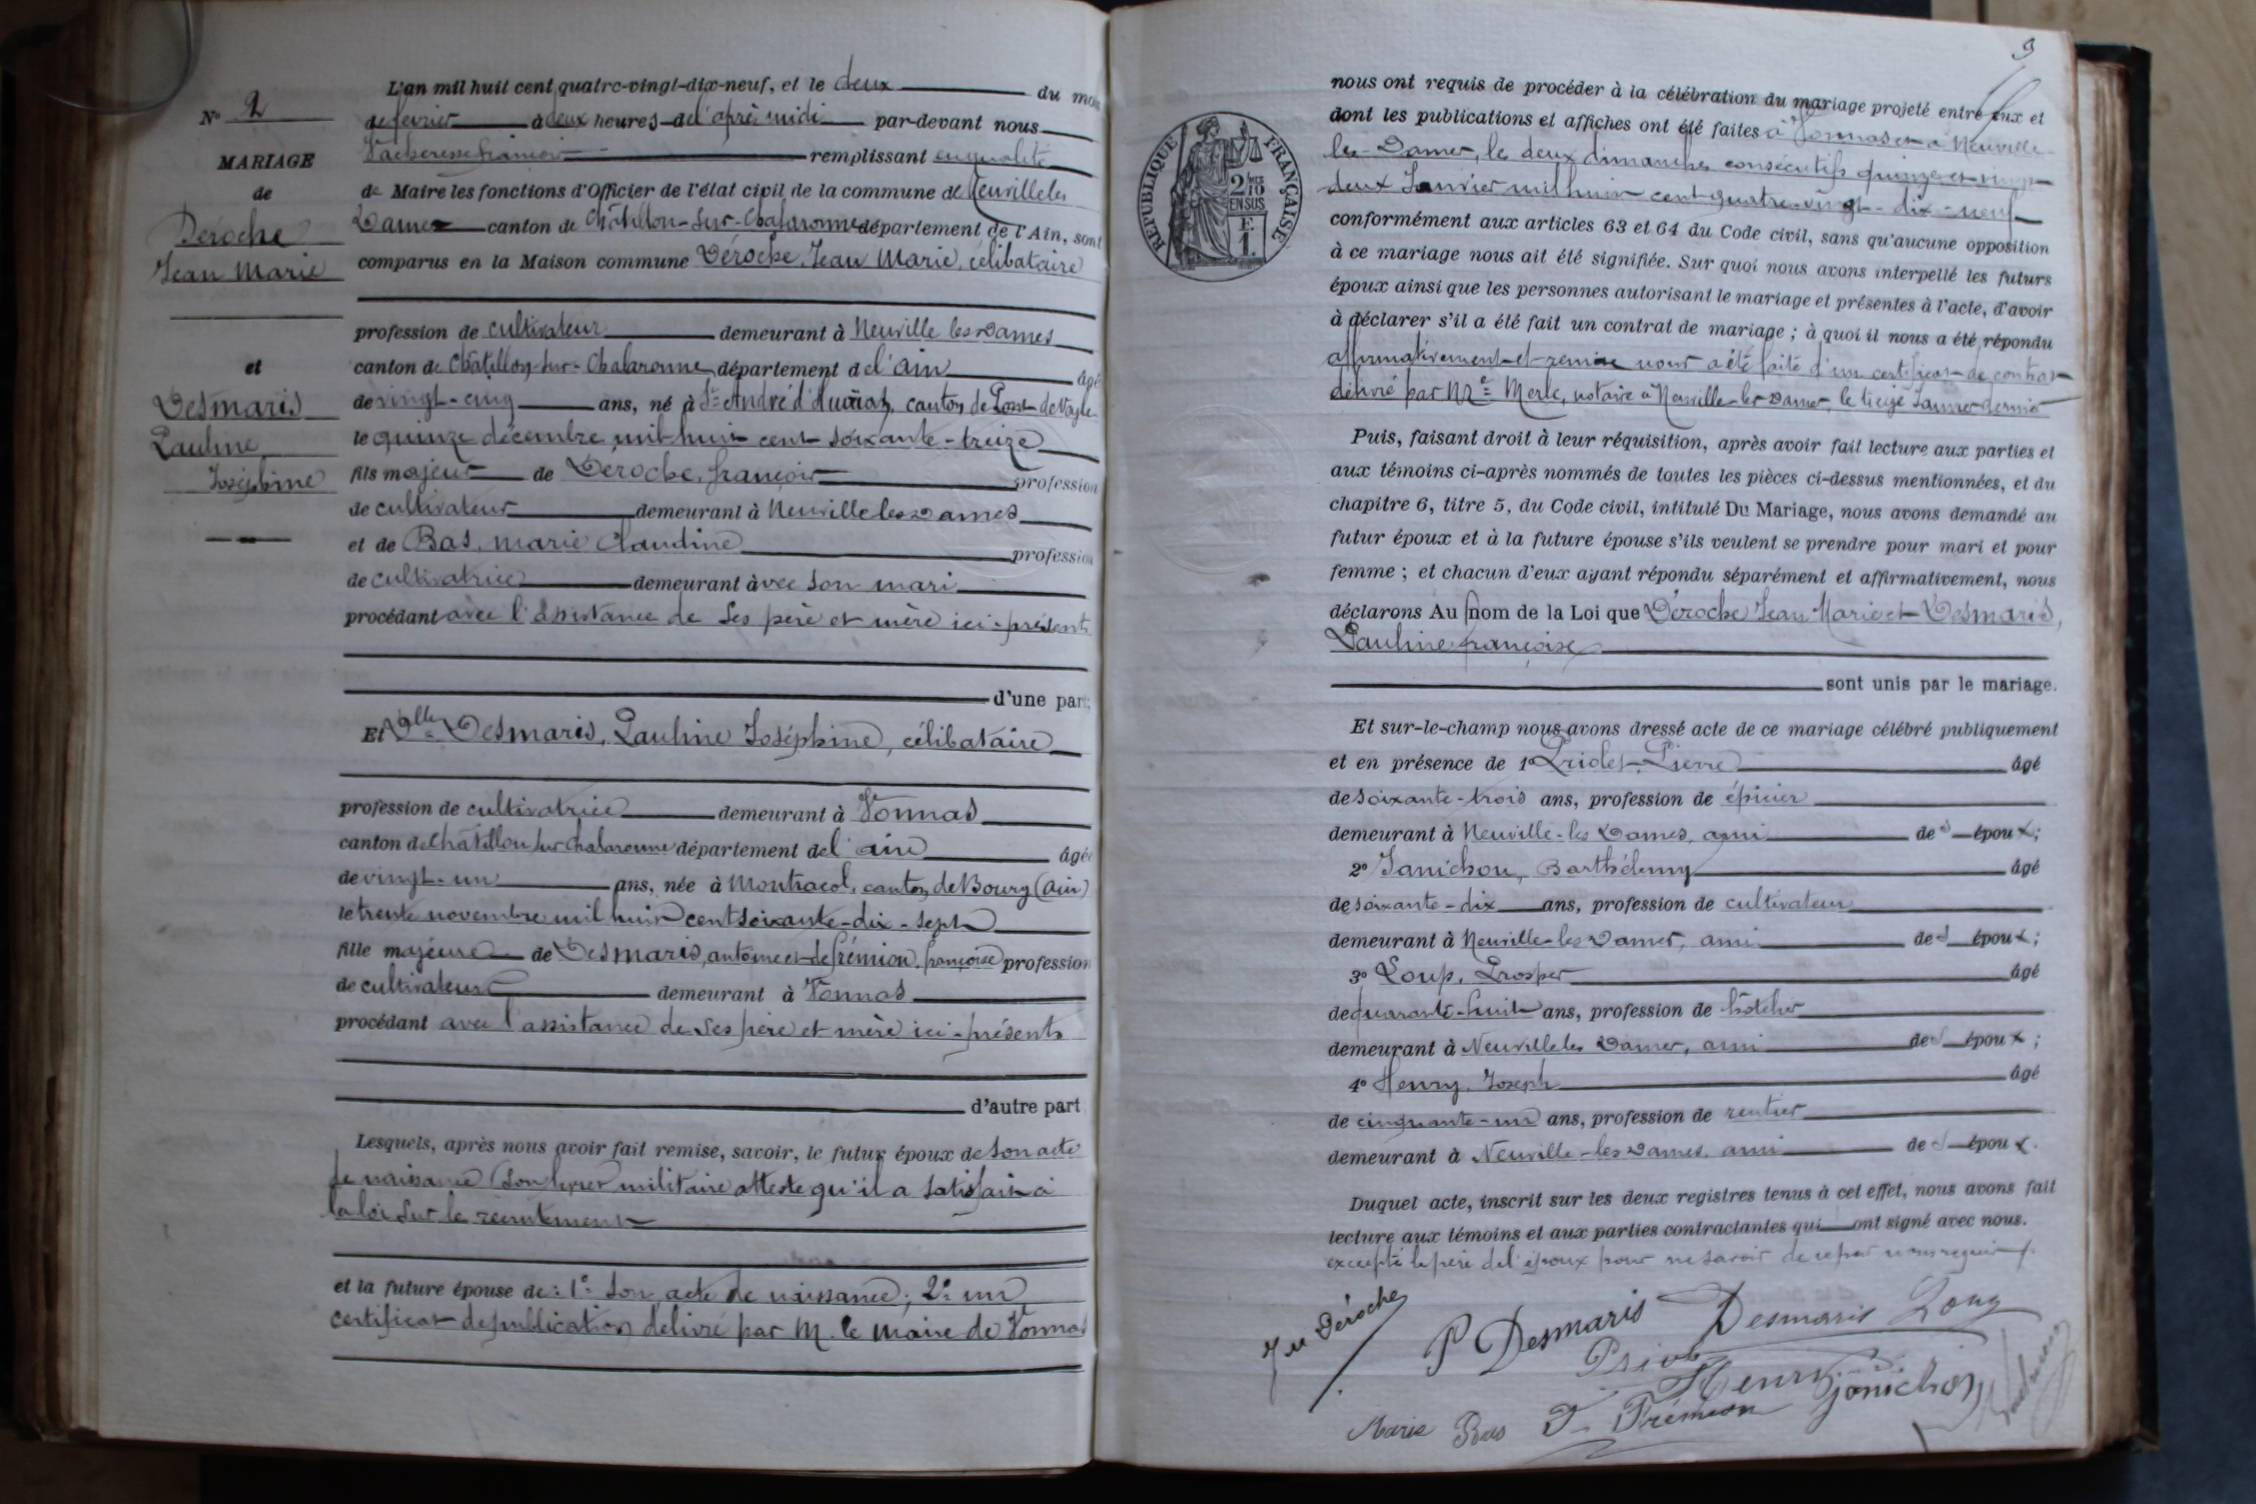 N° 2
MARIAGE
de
Déroche
Jean Marie
et
Desmaris
Pauline
Joséphine
L'an mil huit cent quatre-vingt-dix-neuf, et le deux du mois
de février à deux heures de l'après midi par-devant nous
Vacheresse françois remplissant en qualité
de Maire les fonctions d'Officier de l'état civil de la commune de Neuville les
Dames canton de Châtillon-sur-Chalaronne département de l'Ain, sont
comparus en la Maison commune Déroche, Jean Marie, célibataire
profession de cultivateur demeurant à Neuville les Dames
canton de Châtillon-sur-Chalaronne département de l'ain âgé
de vingt-cinq ans, né à St André d'Huiriat, canton de Pont-de-Veyle
le quinze décembre mil huit cent soixante-treize
fils majeur de Déroche, françois profession
de cultivateur demeurant à Neuville les Dames
et de Bas, marie Claudine profession
de cultivatrice demeurant avec son mari
procédant avec l'assistance de ses père et mère ici-présents
d'une part;
Et Dlle Desmaris, Pauline Joséphine, célibataire
profession de cultivatrice demeurant à Vonnas
canton de Châtillon sur Chalaronne département de l'ain âgée
de vingt-un ans, née à Montracol, canton de Bourg (ain)
le trente novembre mil huit cent soixante-dix-sept
fille majeure de Desmaris, antoine et de frémion, françoise profession
de cultivateurs demeurant à Vonnas
procédant avec l'assistance de ses père et mère ici-présents
d'autre part
Lesquels, après nous avoir fait remise, savoir, le futur époux de son acte
de naissance (son livret militaire atteste qu'il a satisfait à
la loi sur le recrutement
et la future épouse de: 1° son acte de naissance; 2° un
certificat de publication délivré par M. le Maire de Vonnas
9
RÉPUBLIQUE FRANÇAISE
2/10 EN SUS
F. 1.
nous ont requis de procéder à la célébration du mariage projeté entre eux et
dont les publications et affiches ont été faites à Vonnas et à Neuville
les-Dames, les deux dimanches consécutifs quinze et vingt
deux Janvier mil huit cent quatre-vingt-dix-neuf
conformément aux articles 63 et 64 du Code civil, sans qu'aucune opposition
à ce mariage nous ait été signifiée. Sur quoi nous avons interpellé les futurs
époux ainsi que les personnes autorisant le mariage et présentes à l'acte, d'avoir
à déclarer s'il a été fait un contrat de mariage; à quoi il nous a été répondu
affirmativement et remise nous a été faite d'un certificat de contrat
délivré par Me Merle, notaire à Neuville-les-Dames, le treize Janvier dernier
Puis, faisant droit à leur réquisition, après avoir fait lecture aux parties et
aux témoins ci-après nommés de toutes les pièces ci-dessus mentionnées, et du
chapitre 6, titre 5, du Code civil, intitulé Du Mariage, nous avons demandé au
futur époux et à la future épouse s'ils veulent se prendre pour mari et pour
femme; et chacun d'eux ayant répondu séparément et affirmativement, nous
déclarons Au nom de la Loi que Déroche Jean Marie et Desmaris,
Pauline françoise
sont unis par le mariage.
Et sur-le-champ nous avons dressé acte de ce mariage célébré publiquement
et en présence de 1° Priolet, Pierre âgé
de soixante-trois ans, profession de épicier
demeurant à Neuville-les Dames, ami des époux;
2° Janichon, Barthélemy âgé
de soixante-dix ans, profession de cultivateur
demeurant à Neuville-les Dames, ami des époux;
3° Loup, Prosper âgé
de quarante-huit ans, profession de hôtelier
demeurant à Neuville les Dames, ami des époux;
4° Henry, Joseph âgé
de cinquante-un ans, profession de rentier
demeurant à Neuville-les Dames, ami des époux.
Duquel acte, inscrit sur les deux registres tenus à cet effet, nous avons fait
lecture aux témoins et aux parties contractantes qui ont signé avec nous.
excepté le père de l'époux pour ne savoir de ce par nous requis
J M Déroche
P Desmaris Desmaris Loup
Henry Janichon
Marie Bas F. Frémion